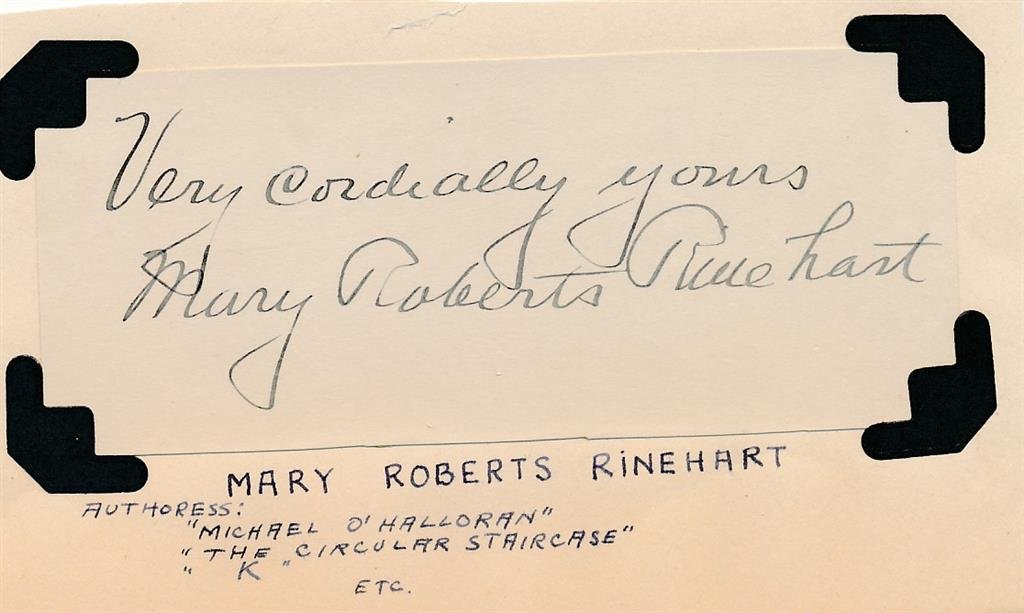 Very cordially yours
Mary Roberts Rinehart
MARY ROBERTS RINEHART
AUTHORESS:
"MICHAEL O'HALLORAN"
"THE CIRCULAR STAIRCASE"
"K"
ETC.